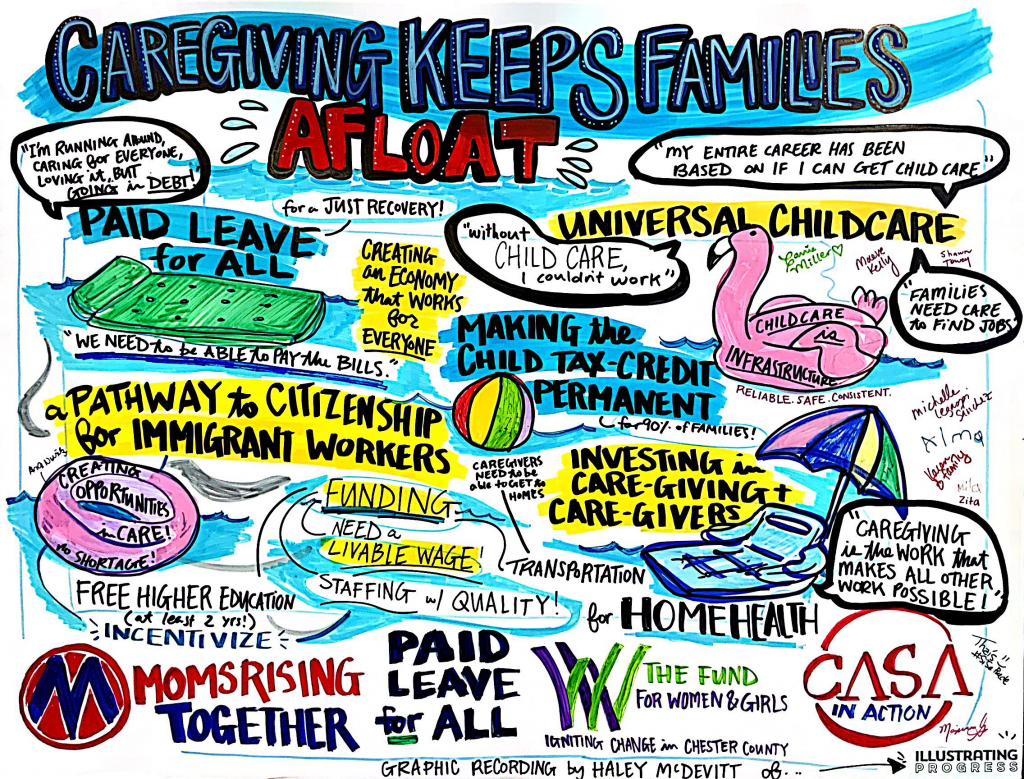 CAREGIVING KEEPS FAMILIES
AFLOAT
"I'M RUNNING AROUND,
CARING for EVERYONE,
LOVING it, BUT
GOING in DEBT!"
"MY ENTIRE CAREER HAS BEEN
BASED ON IF I CAN GET CHILD CARE"
for a JUST RECOVERY!
PAID LEAVE
for ALL
"WE NEED to be ABLE to PAY the BILLS."
CREATING
an ECONOMY
that WORKS
for
EVERYONE
"without
CHILD CARE,
I couldn't work"
UNIVERSAL CHILDCARE
Carrie
Miller
Maeve
Kelly
Shawn
Towey
"FAMILIES
NEED CARE
to FIND JOBS"
CHILDCARE
is
INFRASTRUCTURE
RELIABLE. SAFE. CONSISTENT.
MAKING the
CHILD TAX-CREDIT
PERMANENT
for 90% of FAMILIES!
a PATHWAY to CITIZENSHIP
for IMMIGRANT WORKERS
CREATING
OPPORTUNITIES
in CARE!
no SHORTAGE!
FREE HIGHER EDUCATION
(at least 2 yrs!)
INCENTIVIZE
FUNDING
NEED a
LIVABLE WAGE!
STAFFING w/ QUALITY!
CAREGIVERS
NEED to be
able to GET to
HOMES
TRANSPORTATION
INVESTING in
CARE-GIVING +
CARE-GIVERS
for HOMEHEALTH
michelle
Alma
Zita
"CAREGIVING
is the WORK that
MAKES ALL OTHER
WORK POSSIBLE!"
M
MOMSRISING
TOGETHER
PAID
LEAVE
for ALL
W
THE FUND
FOR WOMEN & GIRLS
IGNITING CHANGE in CHESTER COUNTY
CASA
IN ACTION
GRAPHIC RECORDING by HALEY MCDEVITT of...
ILLUSTRATING
PROGRESS